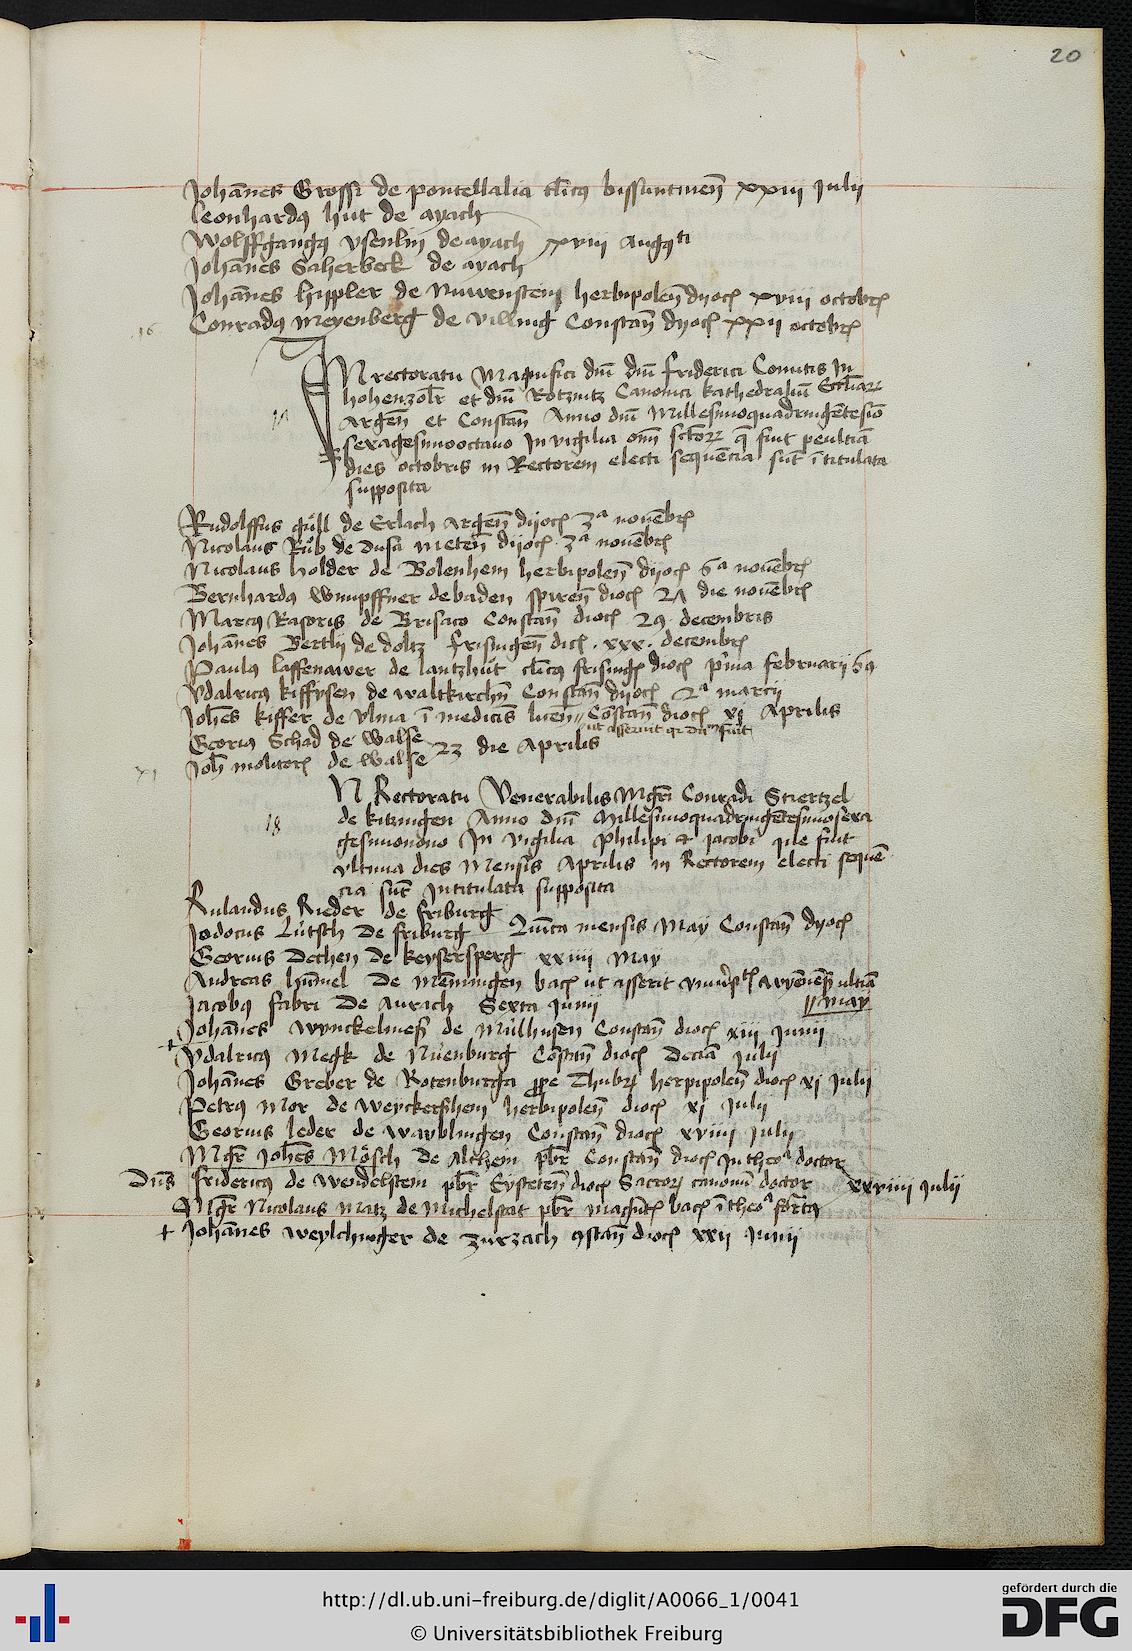 20
Johānes Grossi de pontellalia cl̄icꝯ bissuntineñ xxiii Julii
Leonhardꝯ hut de ayach
Wolffgangꝯ ysenlin de ayach xviii Augꝯti
Johānes Saherbeck de ayach
Johānes hippler de Nuwenstein herbipoleñ dyoc̄ xviii octobr̄
16 Conradꝯ Meyenberg de villing Constañ dyoc̄ xxii octobr̄
IN rectoratu Magnifici dn̄i dn̄i friderici Comitis In
hohenzolr̄ et dn̄i Rotznitz Canonici kathedraliū Eccl̄iaꝝ
17 Argeñ et Constañ Anno dn̄i Millesimoquadringētesio
sexagesimooctauo In vigilia om̄ sctōꝝ q̄ fuit penltīa
dies octobris in Rectorem electi sequencia sūt ītitulata
supposita
Rudolffus gúll de Erlach Argeñ dyoc̄ 3ᵃ nouēbr̄
Nicolaus Růb de Dusa Meteñ dyoc̄ 3ᵃ nouēbr̄
Nicolaus holder de Bolenhem herbipoleñ dyoc̄ 6ᵃ nouēbr̄
Bernhardꝯ wimpffner de baden spireñ dioc̄ 27 die nouēbr̄
Marcꝯ Rasoris de Brisaco Constañ dioc̄ 29 decembris
Johānes Bertlij de doltz frisingeñ dic̄ .xxx. decembr̄
Paulꝯ laffenawer de lantzhůt cl̄icꝯ frisinḡ dioc̄ p̄ma februarij 69
Vdalricꝯ kiffysen de waltkirchn̄ Constañ dyoc̄ 2ᵃ marcij
Joh̄es kiffer de vlma ī medicīs Constañ dioc̄ xi Aprilis
ut asserint
Georiꝯ Schad de walse
23 die Aprilis
Joh̄ molitor̄ de walse
IN Rectoratu Venerabilis Mgr̄i Conradi Stiertzel
18 de kitzingen Anno dn̄i Millesimoquadringētesimosexa
gesimonono In vigilia philipi et Jacobi q̄ le fuit
vltima dies Mensis Aprilis in Rectorem electi sequē
cia sūt Intitulata supposita
Rulandus Rieder de friburg
Jodocus Lútsch de friburg Quīta mensis May Constañ dyoc̄
Georius Dechen de keysersperg xxiiii May
Andreas hūmel de Memingen bac̄ ut asserit vltīa
May
Jacobꝯ fabri de Aurach Sexta Junii
Johānes wynckelmess de Múlhusen Constañ dioc̄ xiii Junii
+ Vdalricꝯ Megk de Núenburg Cōstañ dioc̄ Decīa Julii
Johānes Greber de Rotenburga ꝓpe Thubr̄ herpipoleñ dioc̄ xi Julii
Petrꝯ Mor de weyckerßhem herbipoleñ dioc̄ xi Julii
Georius leder de warblingen Constañ dioc̄ xviiii Julii
Mgr̄ Joh̄es Mösch de Altheim pb̄r Constañ dioc̄ In theoᵃ doctor
Dn̄s fridericꝯ de wendelstem pb̄r Eysteteñ dioc̄ Sacroꝝ canonū doctor xxviiii Julii
Mgr̄ Nicolaus Matz de Michelstat pb̄r magūt̄ bac̄ ī theoᵃ for̄tꝯ
+ Johānes weylchinger de zurzach ꝯstañ dioc̄ xxii Junij
http://dl.ub.uni-freiburg.de/diglit/A0066_1/0041
© Universitätsbibliothek Freiburg
gefördert durch die
DFG